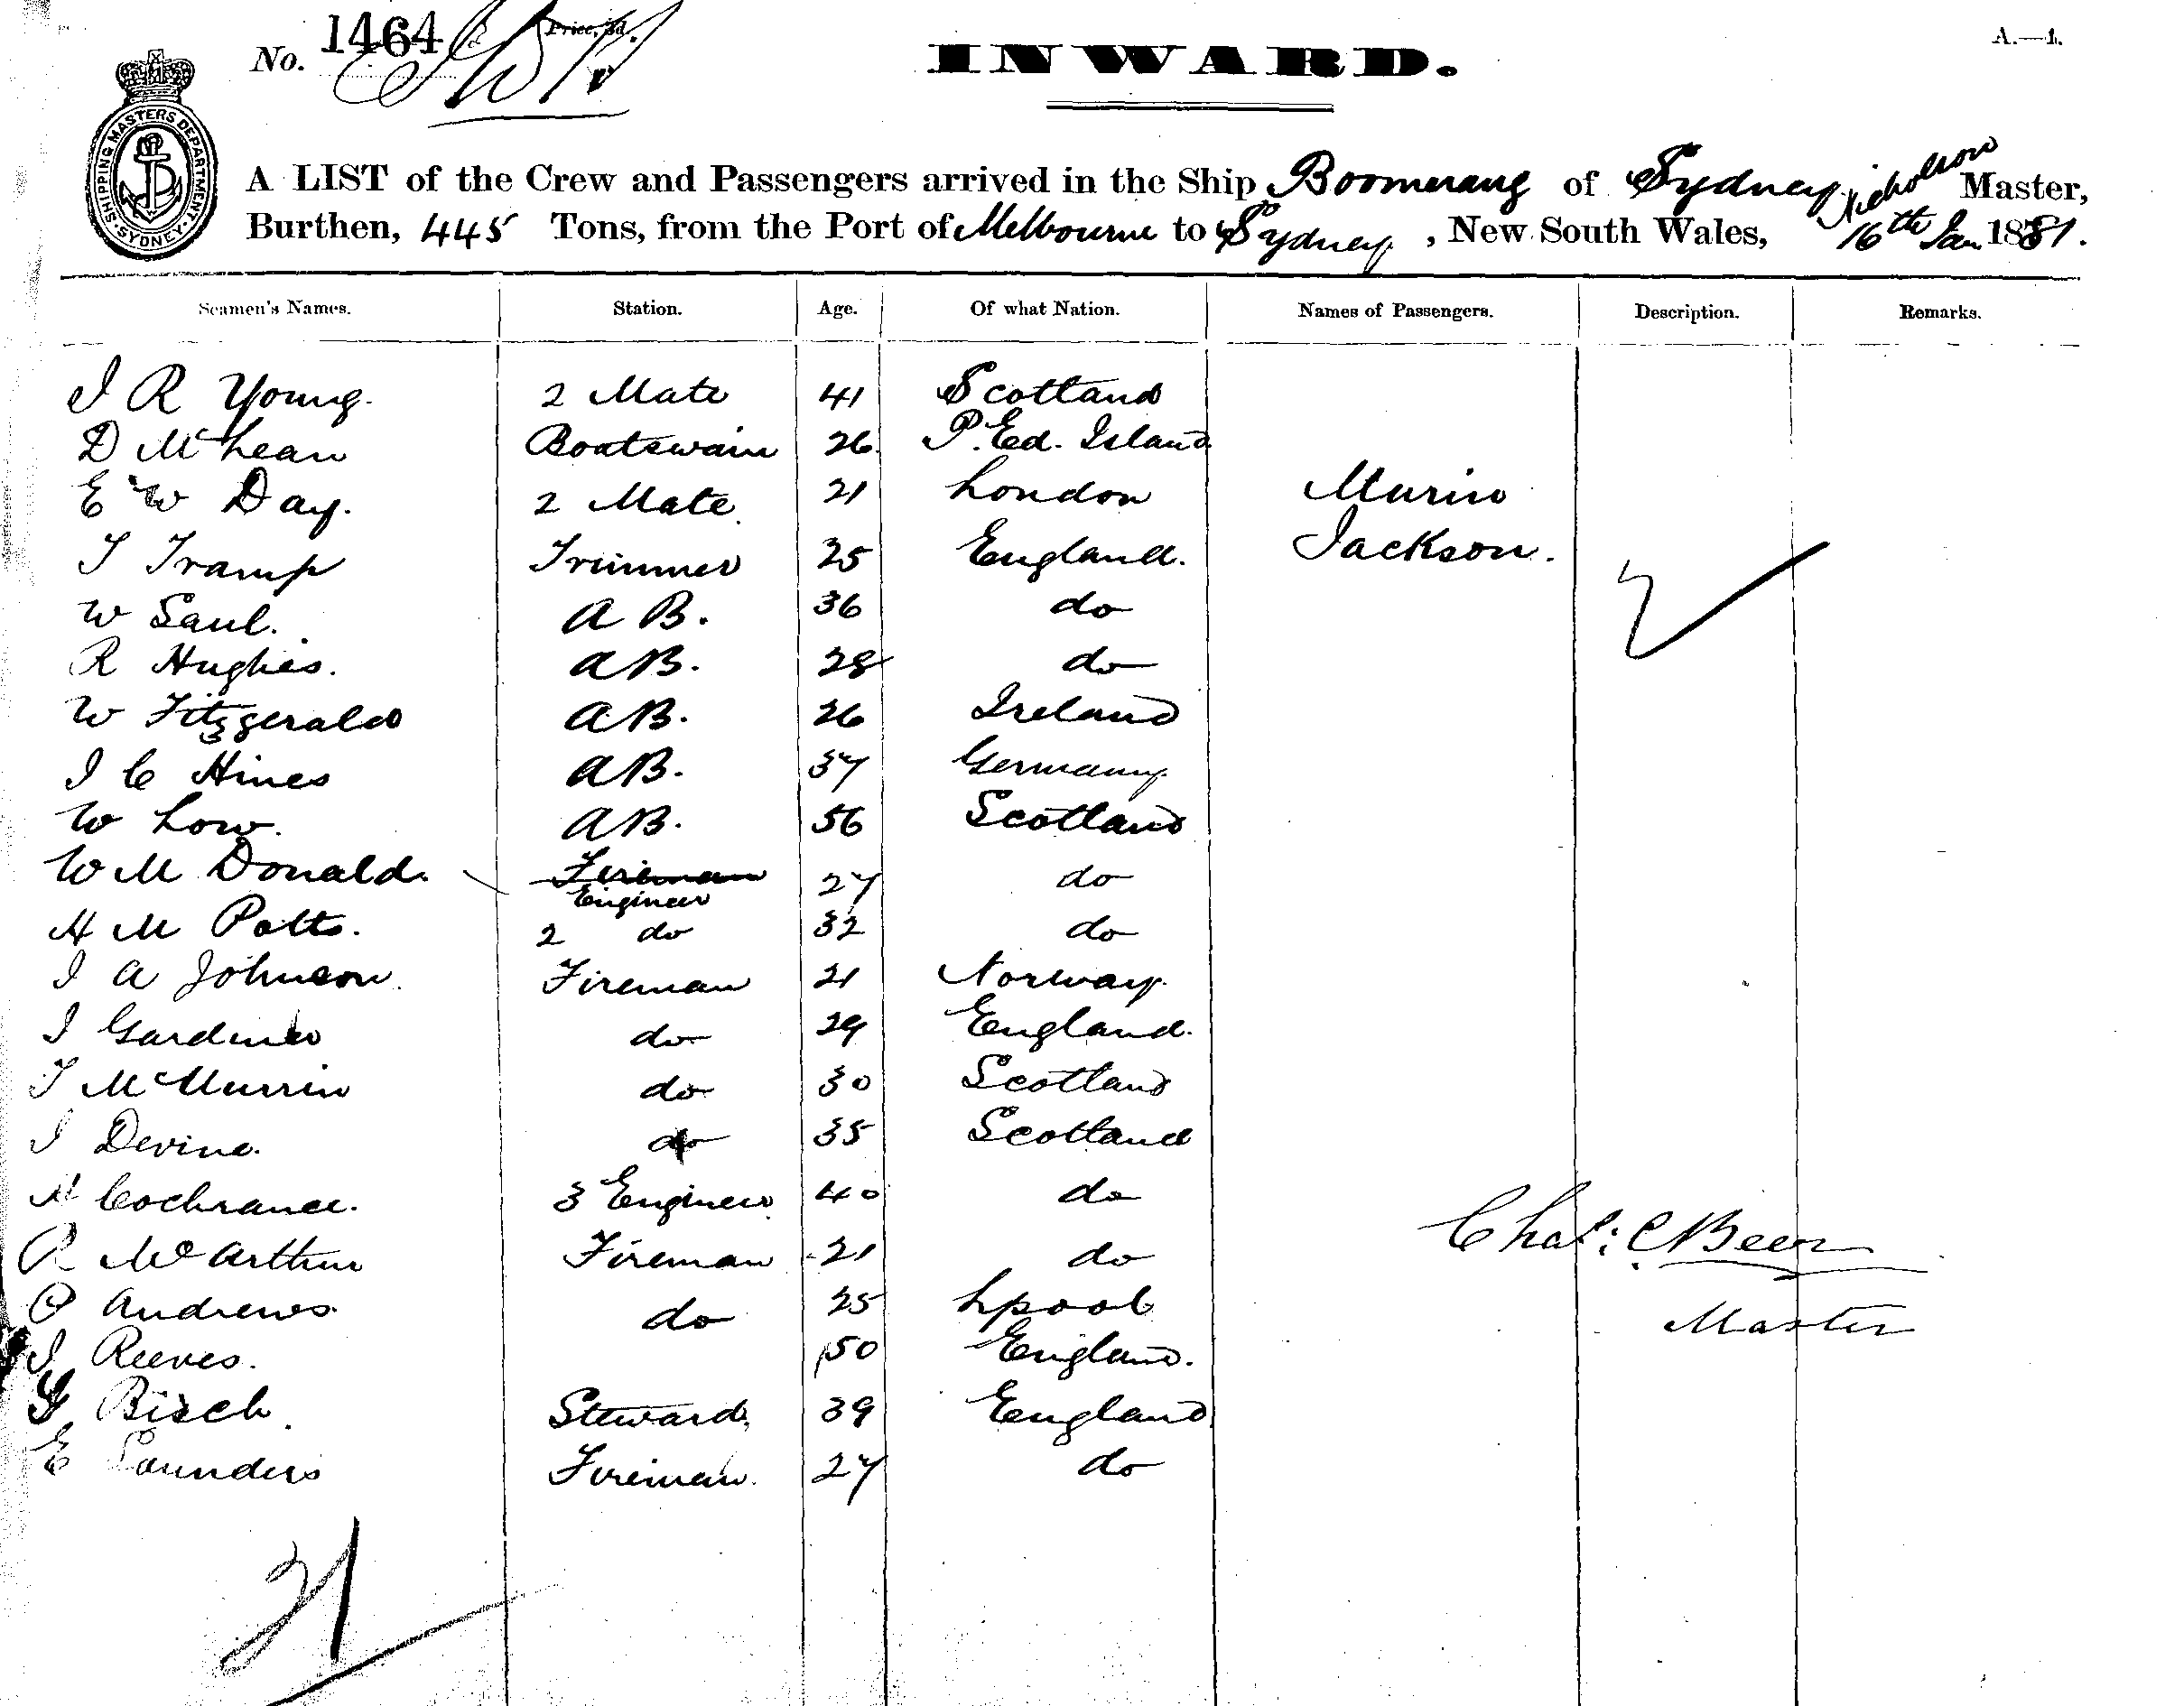 No. 1464
Price, 3d.
INWARD.
A.—1.
SHIPPING MASTERS DEPARTMENT SYDNEY
A LIST of the Crew and Passengers arrived in the Ship Boomerang of Sydney, Nicholson Master,
Burthen, 445 Tons, from the Port of Melbourne to Sydney, New South Wales, 16th Jan 1881.
Seamen's Names. Station. Age. Of what Nation. Names of Passengers. Description. Remarks.
J R Young. 2 Mate 41 Scotland
D McLean Boatswain 26 P. Ed. Island
E W Day. 2 Mate 21 London Murin
T Tramp Trimmer 25 England. Jackson.
W Saul. A B. 36 do
R Hughes. AB. 28 do
W Fitzgerald AB. 26 Ireland
J C Hines AB. 37 Germany
W Low. AB. 56 Scotland
W M Donald. Fireman Engineer 27 do
H M Potts. 2 do 32 do
J A Johnson. Fireman 21 Norway.
J Gardiner do 29 England.
T McMurrin do 30 Scotland
J Devine. do 35 Scotland
Cochrane. 3 Engineer 40 do
R McArthur Fireman 21 do
Andrews. do 25 Lpool
J Reeves. 50 England.
Birch Steward, 39 England
E Saunders Fireman. 27 do
Chas: C Beer
Master
21